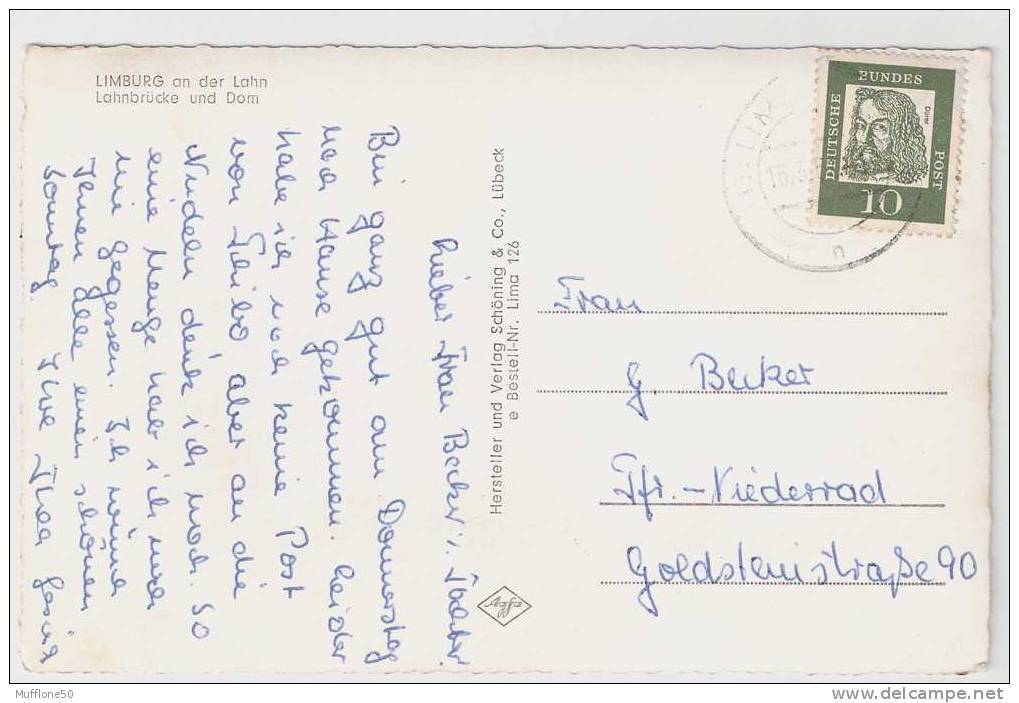 LIMBURG an der Lahn
Lahnbrücke und Dom
Lieber Frau Becker
Bin ganz gut am Donnerstag
nach Hause gekommen. Leider
habe ich noch keine Post
von aber an die
Nudeln denk ich noch. So
eine Menge hab ich nur
nie gegessen. Ich wünsche
Ihnen alle einen schönen
Sonntag. Ihre Thea
Hersteller und Verlag Schöning & Co., Lübeck
e Bestell-Nr. Lima 126
Agfa
DEUTSCHE BUNDES POST
Dürer
10
Frau
G. Becker
Ffr.-Niederrad
Goldsteinstraße 90
Mufflone50
delcampe.net